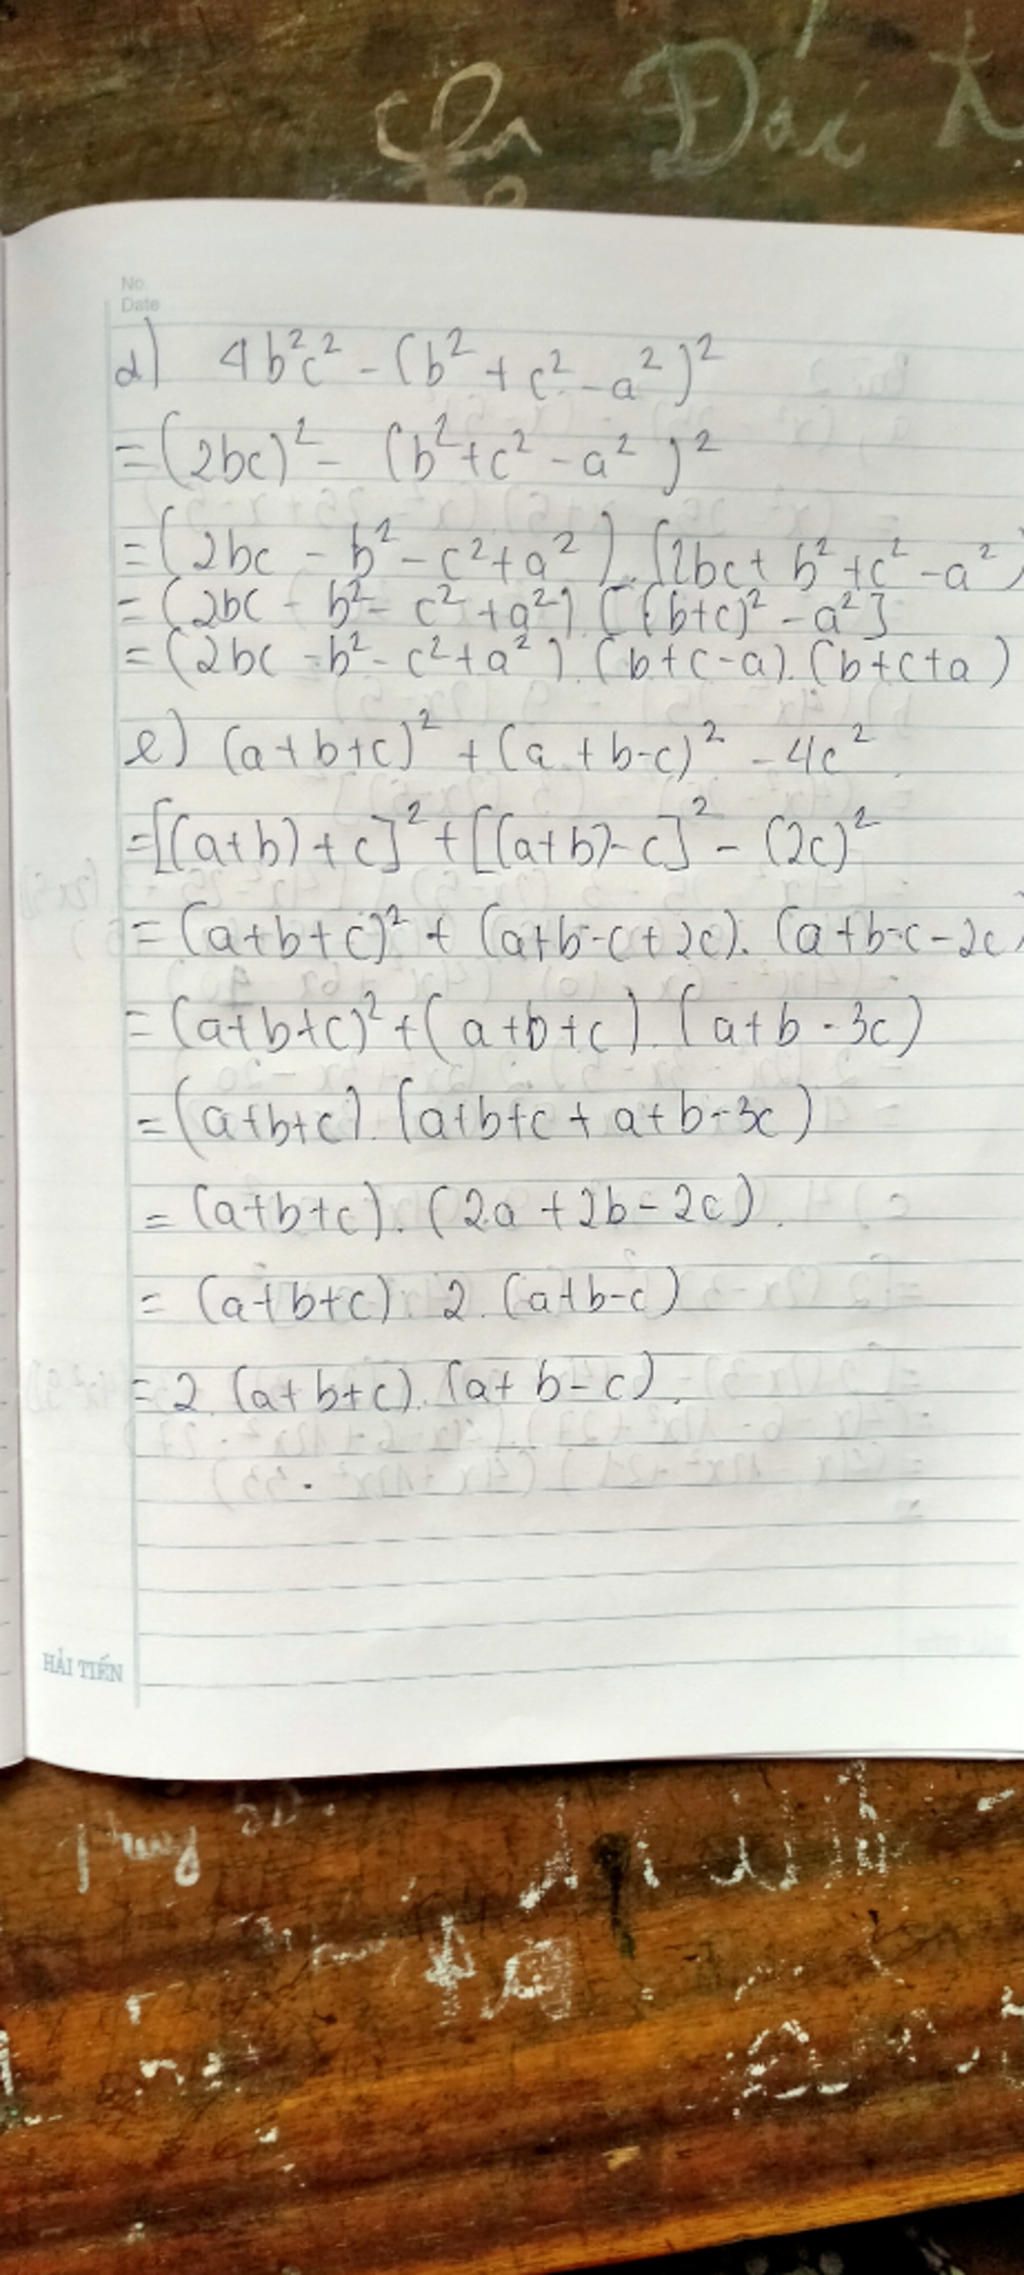 Đái
No.
Date
d) 4b²c² - (b² + c² - a²)²
= (2bc)² - (b² + c² - a²)²
= (2bc - b² - c² + a²) . (2bc + b² + c² - a²)
= (2bc - b² - c² + a²) . [(b+c)² - a²]
= (2bc - b² - c² + a²) . (b + c - a) . (b + c + a)
e) (a + b + c)² + (a + b - c)² - 4c²
= [(a+b) + c]² + [(a+b) - c]² - (2c)²
= (a+b+c)² + (a+b-c+2c) . (a+b-c-2c)
= (a+b+c)² + (a+b+c) . (a+b-3c)
= (a+b+c) . (a+b+c + a+b-3c)
= (a+b+c) . (2a + 2b - 2c) .
= (a+b+c) . 2 . (a+b-c)
= 2 . (a+b+c) . (a+b-c) .
HẢI TIẾN